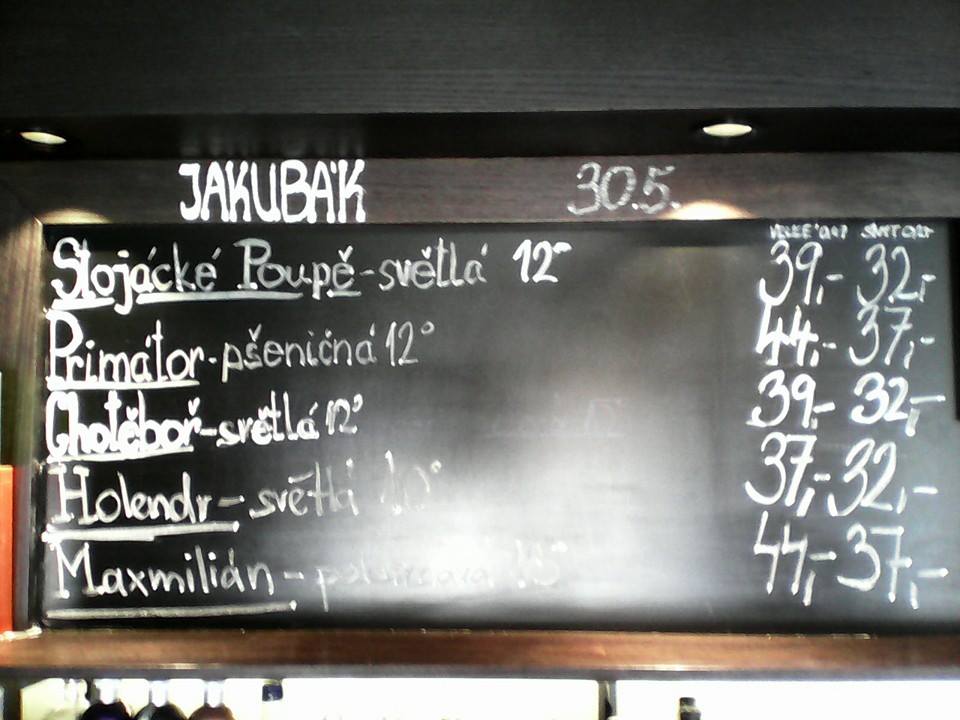 JAKUBÁK 30.5.
Stojácké Poupě-světlá 12° 39,- 32,-
Primátor-pšeničná 12° 44,- 37,-
Chotěboř-světlá 12° 39,- 32,-
Holendr-světlá 10° 37,- 32,-
Maxmilián- 44,- 37,-